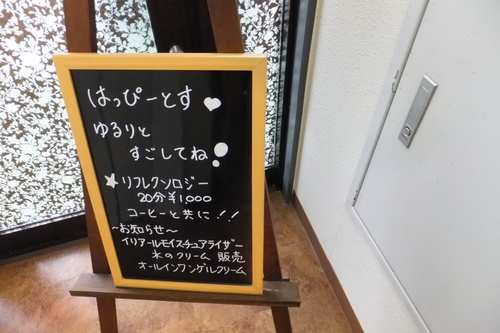 はっぴーとす♥
ゆるりと
すごしてね!
★リフレクソロジー
20分¥1,000
コーヒーと共に!!
〜お知らせ〜
イリアールモイスチュアライザー
水のクリーム 販売
オールインワンゲルクリーム